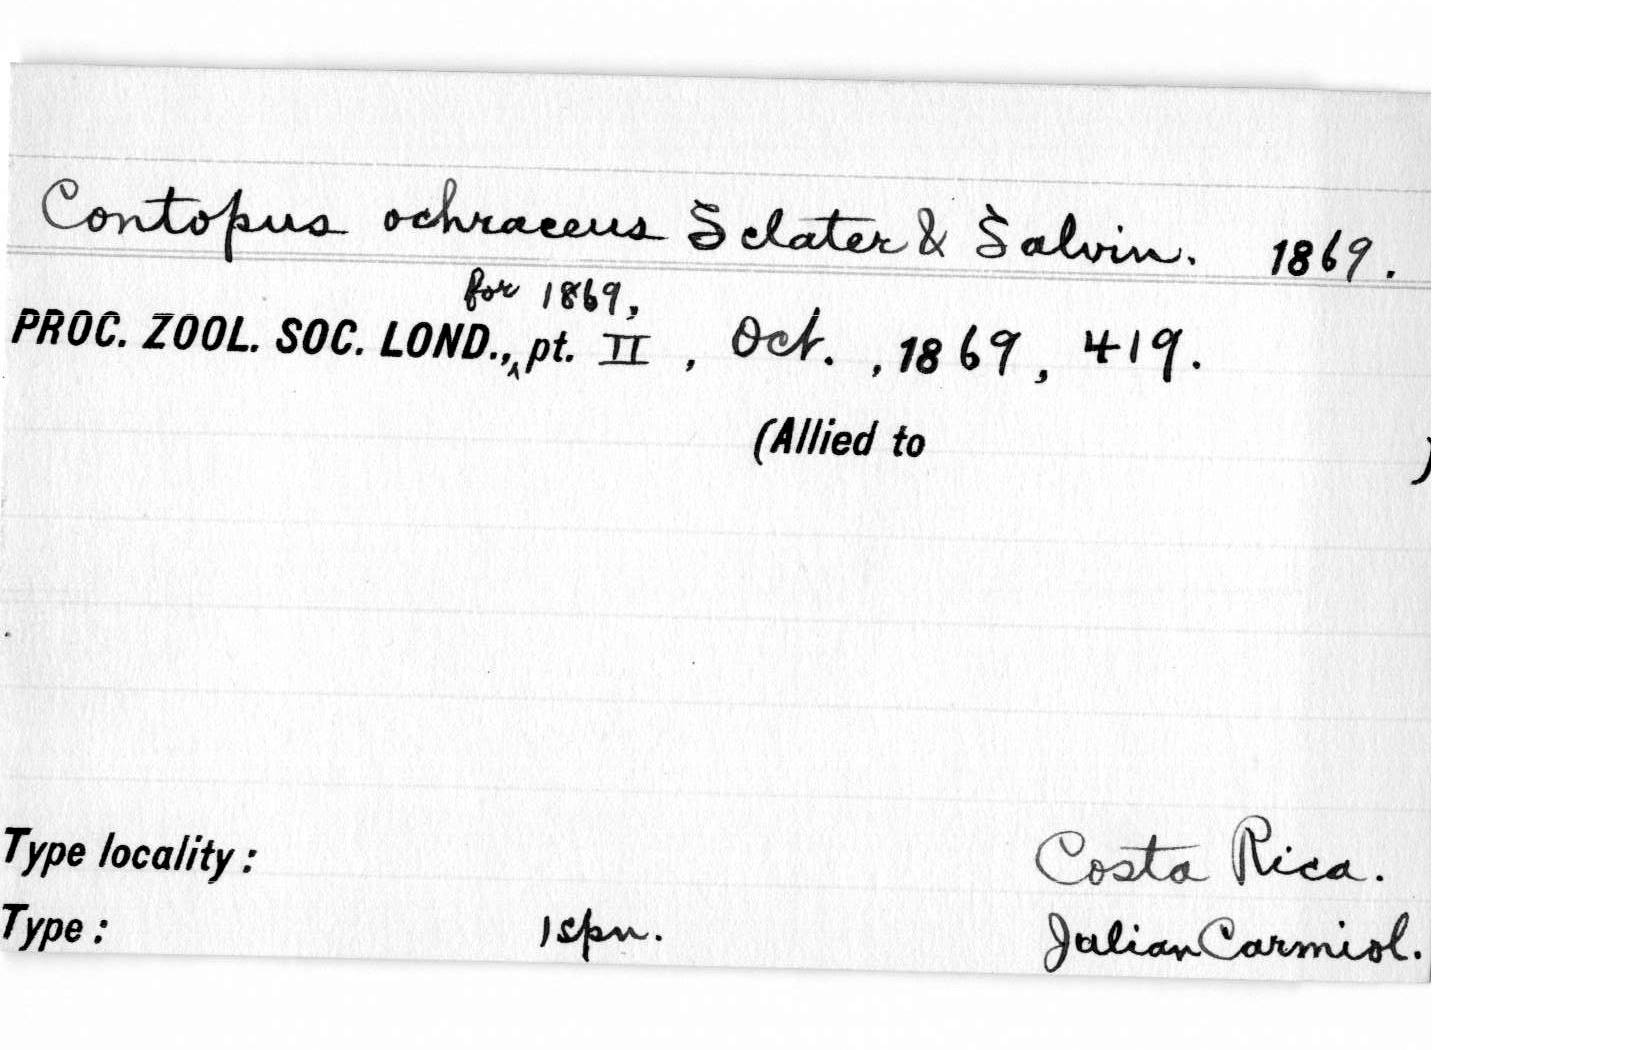 Contopus ochraceus Sclater & Salvin. 1869.
for 1869,
PROC. ZOOL. SOC. LOND.,‸ pt. II , Oct. , 1869, 419.
(Allied to )
Type locality: Costa Rica.
Type: 1 spn. Julian Carmiol.